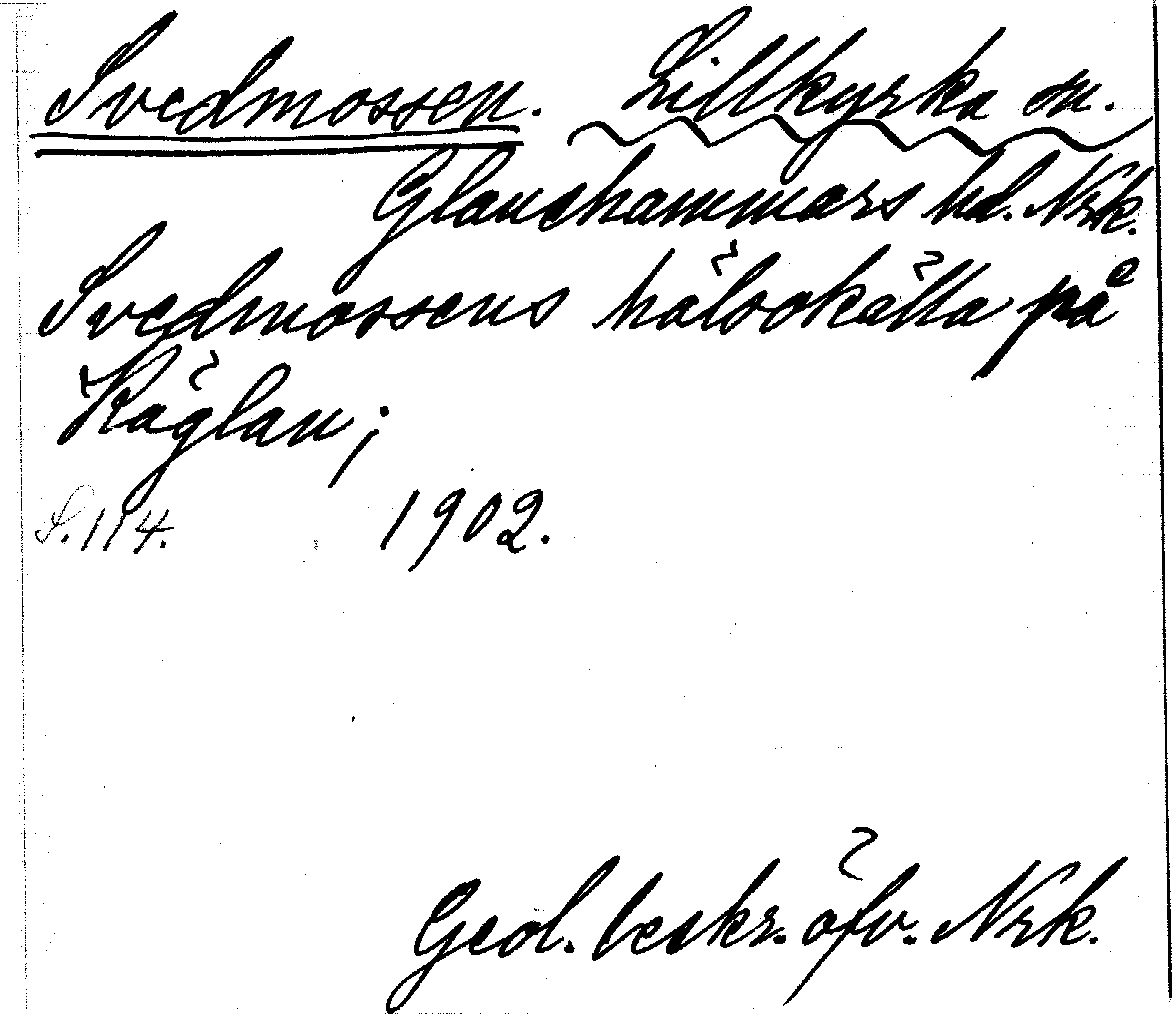 Svedmossen. Lillkyrka sn.
Glanshammars hd. Nrk.
Svedmossens hälsokälla på
Käglan;
S. 114. 1902.
Geol. beskr. öfv. Nrk.